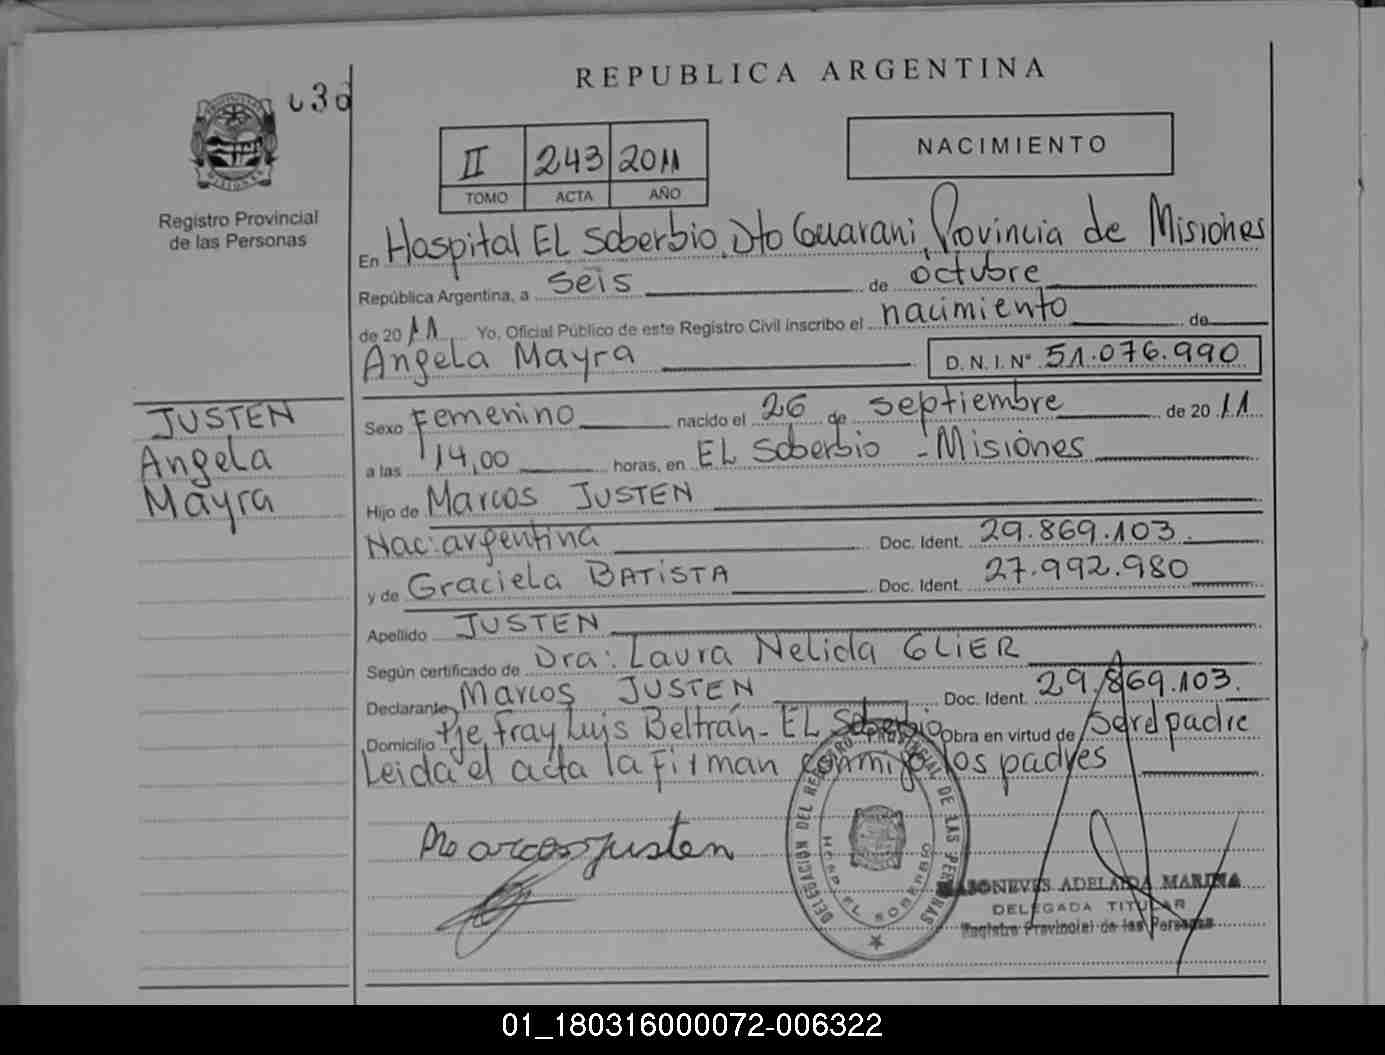 REPUBLICA ARGENTINA
Registro Provincial
de las Personas
II 243 2011
TOMO ACTA AÑO
NACIMIENTO
En Hospital EL Soberbio, Dto Guarani, Provincia de Misiones
República Argentina, a seis de octubre
de 2011 Yo, Oficial Público de este Registro Civil inscribo el nacimiento de
Angela Mayra D. N. I. Nº 51.076.990
JUSTEN
Angela
Mayra
Sexo Femenino nacido el 26 de septiembre de 2011
a las 14,00 horas, en EL Soberbio - Misiones
Hijo de Marcos JUSTEN
Nac: argentina Doc. Ident. 29.869.103
y de Graciela BATISTA Doc. Ident. 27.992.980
Apellido JUSTEN
Según certificado de Dra: Laura Nelida GLIER
Declarante Marcos JUSTEN Doc. Ident. 29.869.103.
Domicilio Pje Fray Luis Beltrán - EL Soberbio Obra en virtud de Ser el padre
Leida el acta la firman conmigo los padres
Marcos justen
DELEGACION DEL REGISTRO PROVINCIAL DE LAS PERSONAS
HOSP EL SOBERBIO
ADELAIDA MARINA
DELEGADA TITULAR
Registro Provincial de las Personas
01_180316000072-006322